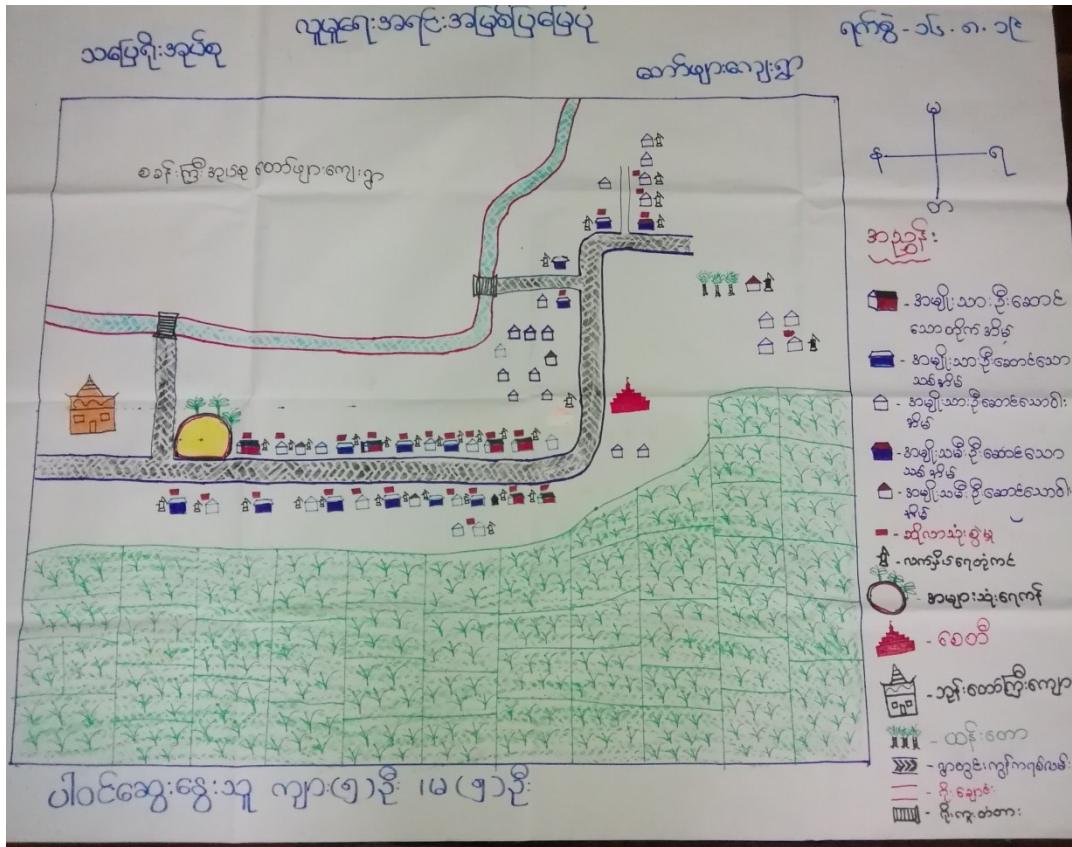 လူမှုရေးအရင်းအမြစ်ပြမြေပုံ
ရက်စွဲ - ၁၆.၈.၁၉
သပြေရိုးအုပ်စု
တော်ဖျားကျေးရွာ
စခန်းကြီးအုပ်စု တော်ဖျားကျေးရွာ
မ
န
ရ
တ
အညွှန်း
- အမျိုးသားဦးဆောင်
သောတိုက်အိမ်
- အမျိုးသားဦးဆောင်သော
သစ်အိမ်
- အမျိုးသားဦးဆောင်သောဝါး
အိမ်
- အမျိုးသမီးဦးဆောင်သော
သစ်အိမ်
- အမျိုးသမီးဦးဆောင်သောဝါး
အိမ်
- ဆိုလာသုံးစွဲမှု
- လက်နှိပ်ရေတုံကင်
- အများသုံးရေကန်
- စေတီ
- ဘုန်းတော်ကြီးကျောင်း
- ထန်းတော
- ရွာတွင်းကွန်ကရစ်လမ်း
- ရိုးချောင်း
- ရိုးကူးတံတား
ပါဝင်ဆွေးနွေးသူ ကျား(၅)ဦး ၊မ(၅)ဦး